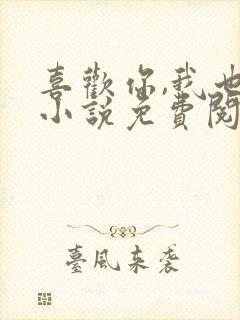 喜歡你,我也
小說免費閱
臺風來襲